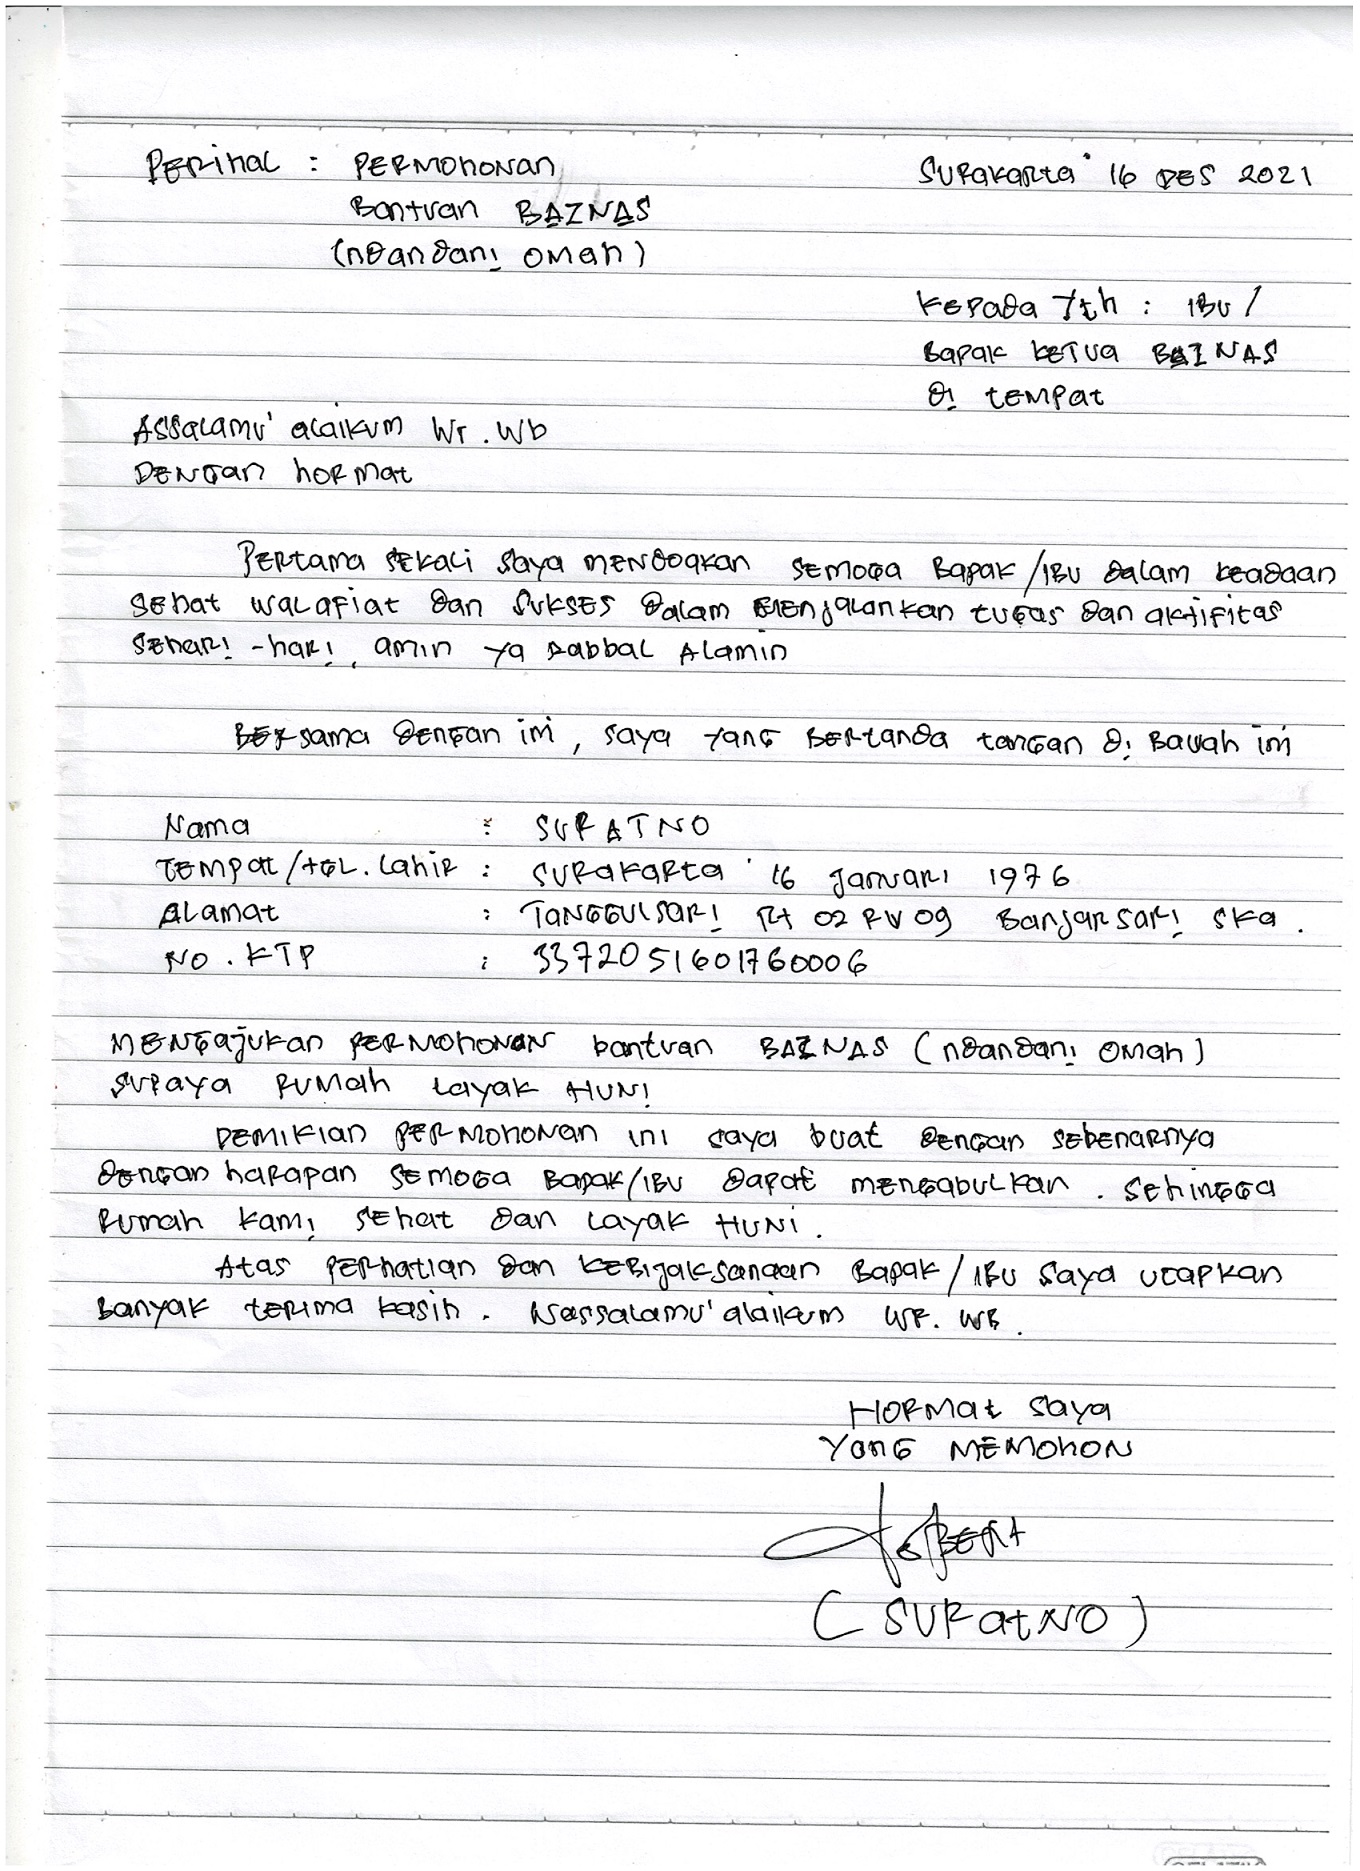 Perihal : PERMOHONAN
Surakarta' 16 DES 2021
Bantuan BAZNAS
(ndandani omah)
Kepada Yth : IBU /
Bapak KETUA BAZNAS
di tempat
Assalamu' alaikum Wr. Wb
Dengan hormat
Pertama sekali saya mendoakan semoga Bapak/IBU dalam keadaan
sehat walafiat dan sukses dalam menjalankan tugas dan aktifitas
sehari-hari, amin ya Rabbal Alamin
Bersama dengan ini, saya yang bertanda tangan di bawah ini
Nama : SURATNO
Tempat/tgl. Lahir : Surakarta' 16 Januari 1976
Alamat : Tanggulsari Rt 02 RW 09 Banjarsari SKA.
NO. KTP : 3372051601760006
Mengajukan permohonan bantuan BAZNAS (ndandani omah)
supaya rumah layak HUNI
Demikian permohonan ini saya buat dengan sebenarnya
dengan harapan semoga Bapak/IBU dapat mengabulkan. sehingga
Rumah kami sehat dan layak HUNI.
Atas perhatian dan kebijaksanaan Bapak/IBU saya ucapkan
banyak terima kasih. Wassalamu' alaikum WR. WB.
Hormat saya
Yang MEMOHON
(SURATNO)